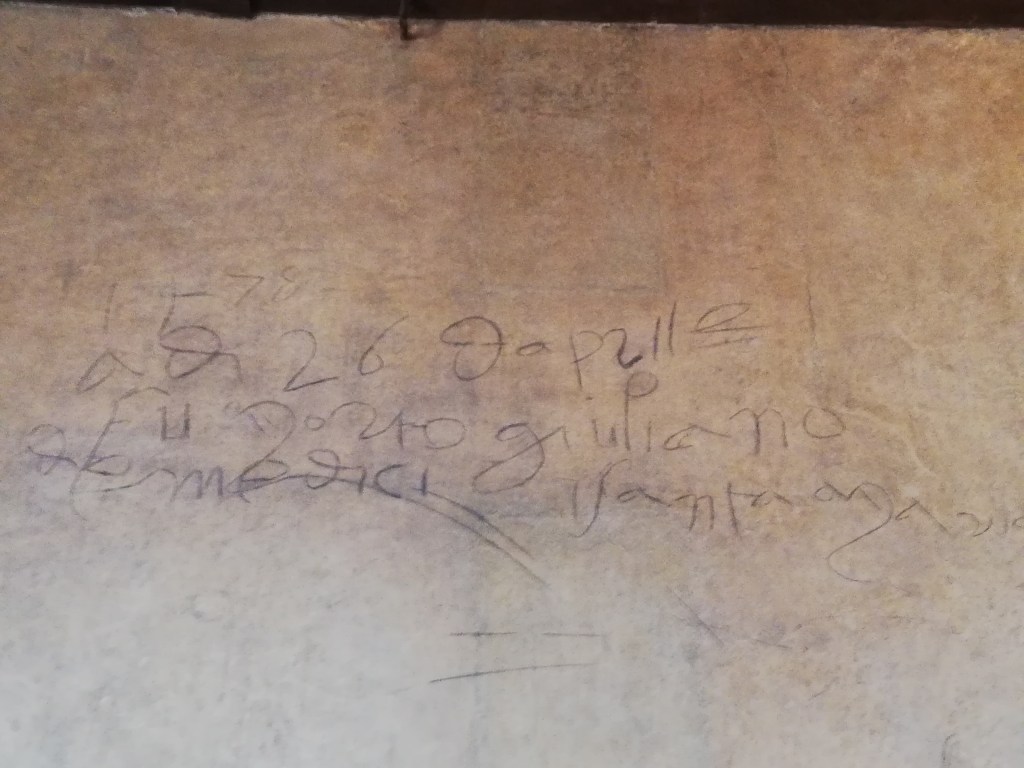 1578
adi 26 daprille
fu morto giuliano
de medici i santa maria